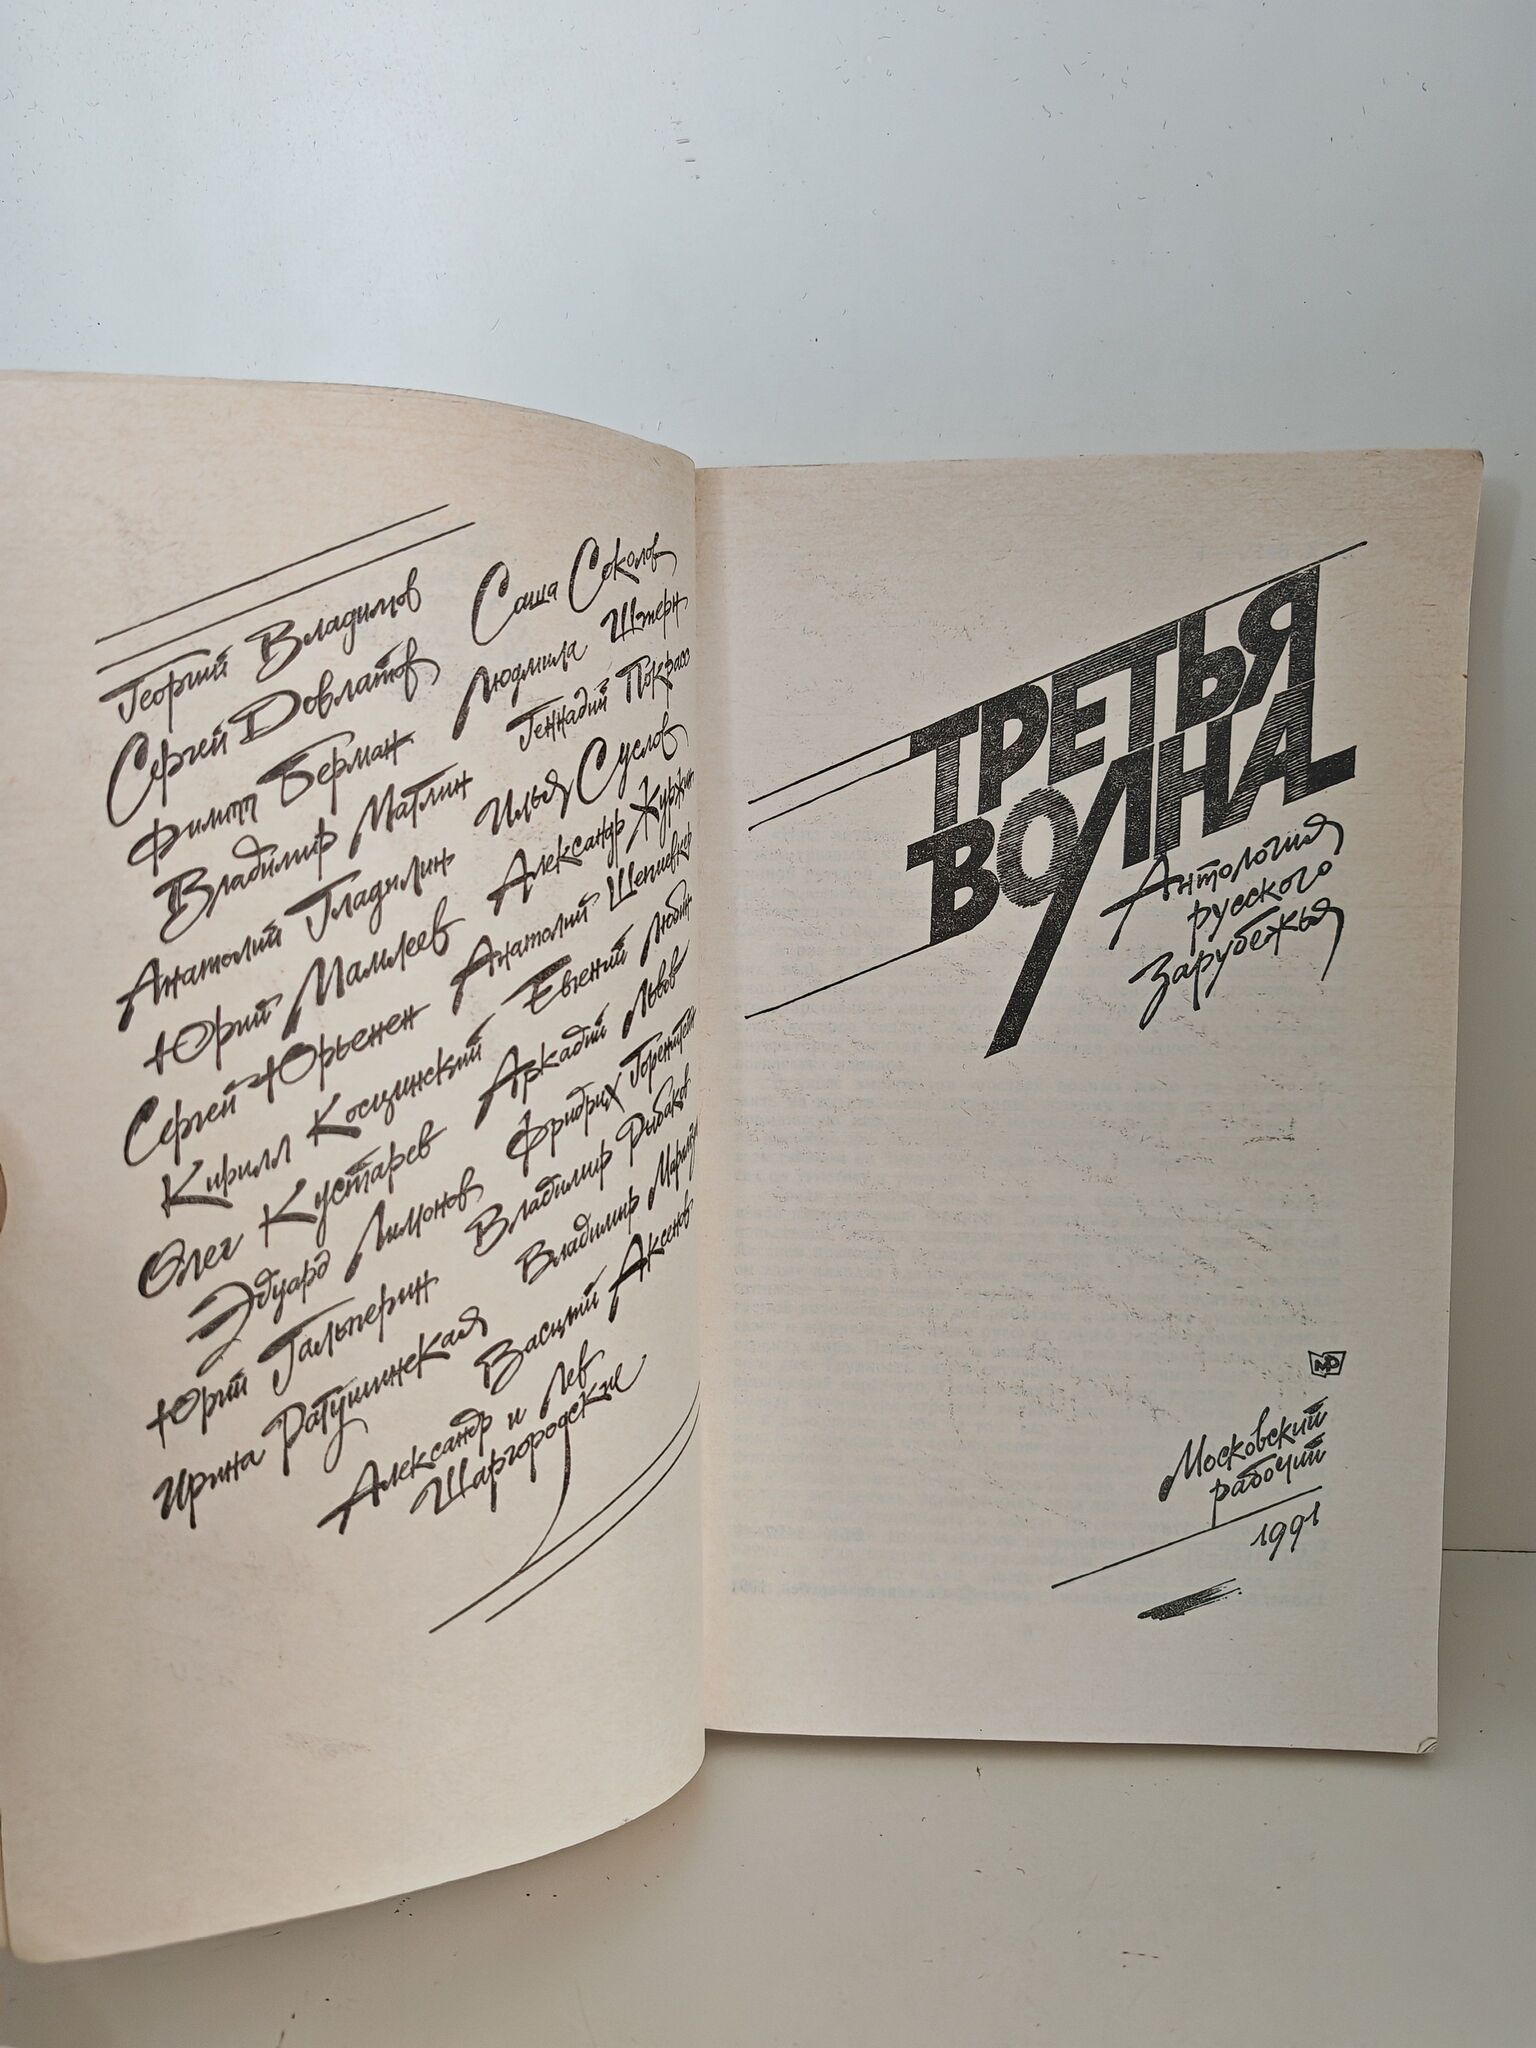 Георгий Владимов
Саша Соколов
Сергей Довлатов
Людмила Штерн
Филипп Берман
Геннадий Покрасс
Владимир Матлин
Илья Суслов
Анатолий Гладилин
Александр Куржин
Юрий Мамлеев
Анатолий
Сергей Юрьенен
Евгений Любин
Кирилл Косцинский
Аркадий Львов
Олег Кустарев
Фридрих Горенштейн
Эдуард Лимонов
Владимир Рыбаков
Юрий Гальперин
Владимир
Ирина Ратушинская
Василий Аксенов
Александр и Лев
Шаргородские
ТРЕТЬЯ
ВОЛНА
Антология
русского
Зарубежья
Московский
рабочий
1991